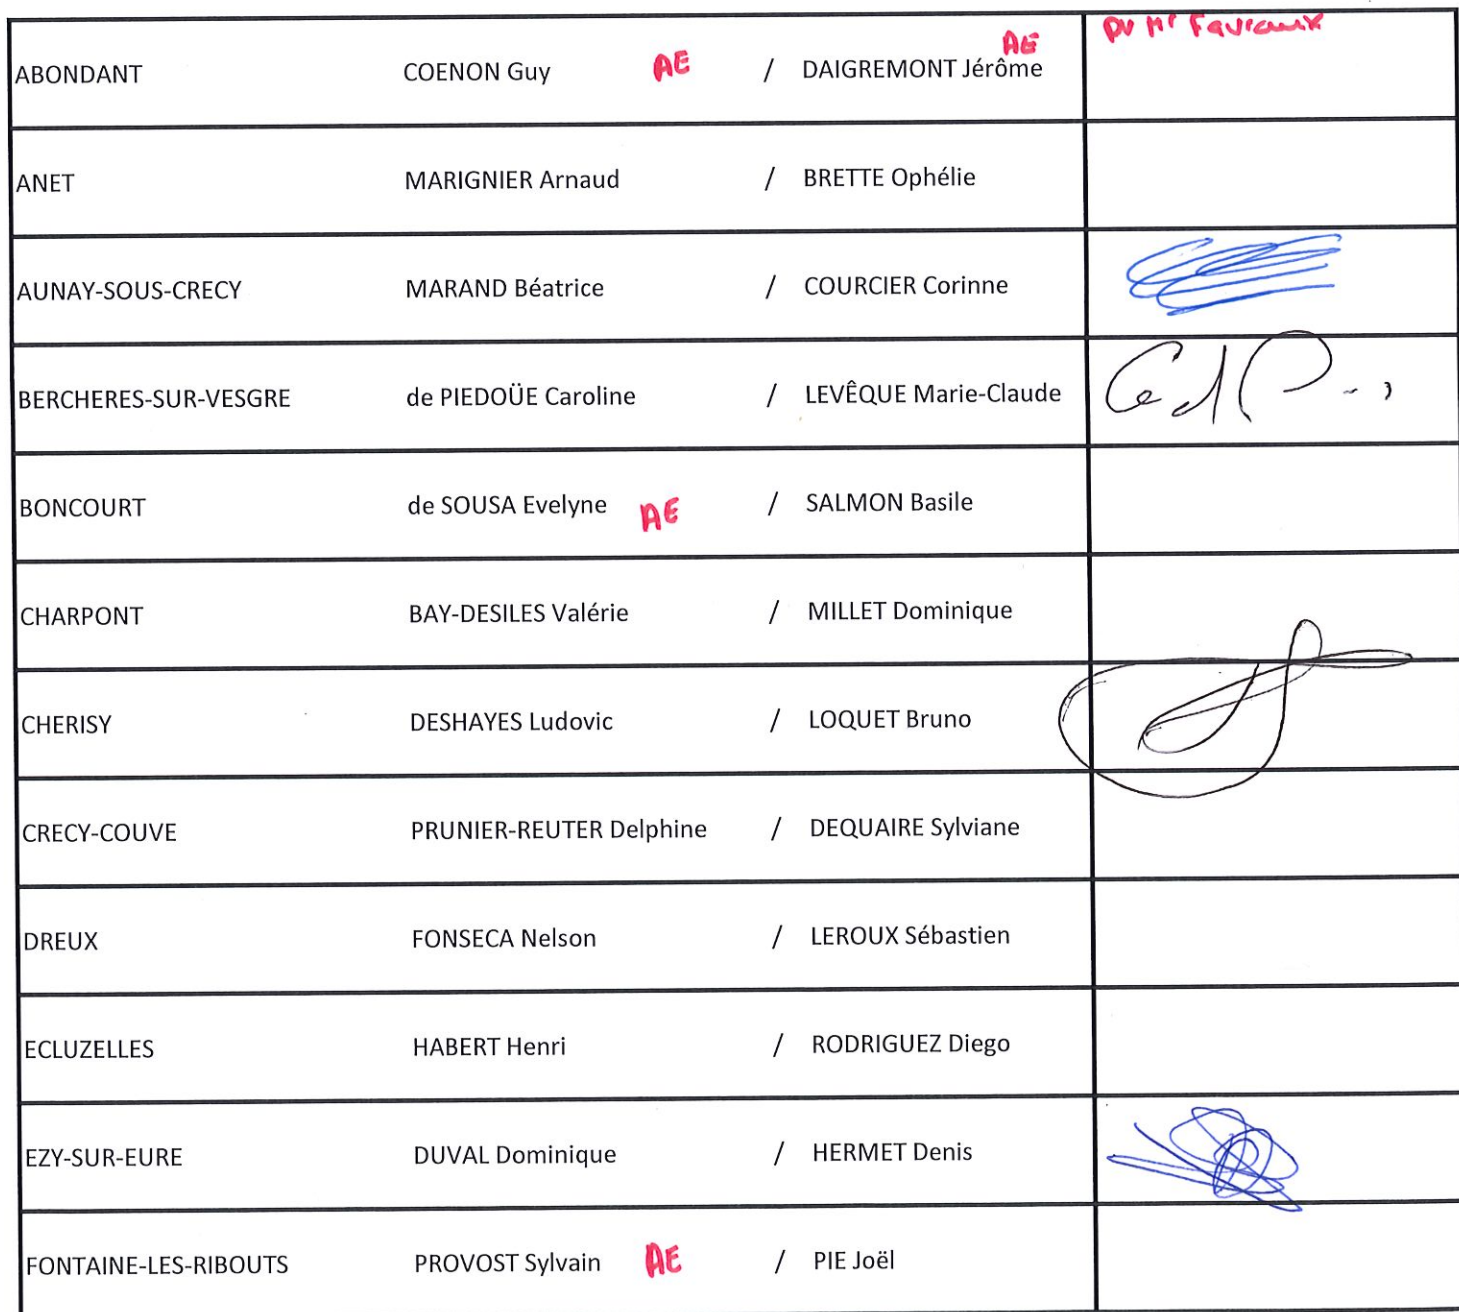 ABONDANT COENON Guy AE / DAIGREMONT Jérôme AE PV Mr Favraux
ANET MARIGNIER Arnaud / BRETTE Ophélie
AUNAY-SOUS-CRECY MARAND Béatrice / COURCIER Corinne
BERCHERES-SUR-VESGRE de PIEDOÜE Caroline / LEVÊQUE Marie-Claude
BONCOURT de SOUSA Evelyne AE / SALMON Basile
CHARPONT BAY-DESILES Valérie / MILLET Dominique
CHERISY DESHAYES Ludovic / LOQUET Bruno
CRECY-COUVE PRUNIER-REUTER Delphine / DEQUAIRE Sylviane
DREUX FONSECA Nelson / LEROUX Sébastien
ECLUZELLES HABERT Henri / RODRIGUEZ Diego
EZY-SUR-EURE DUVAL Dominique / HERMET Denis
FONTAINE-LES-RIBOUTS PROVOST Sylvain AE / PIE Joël